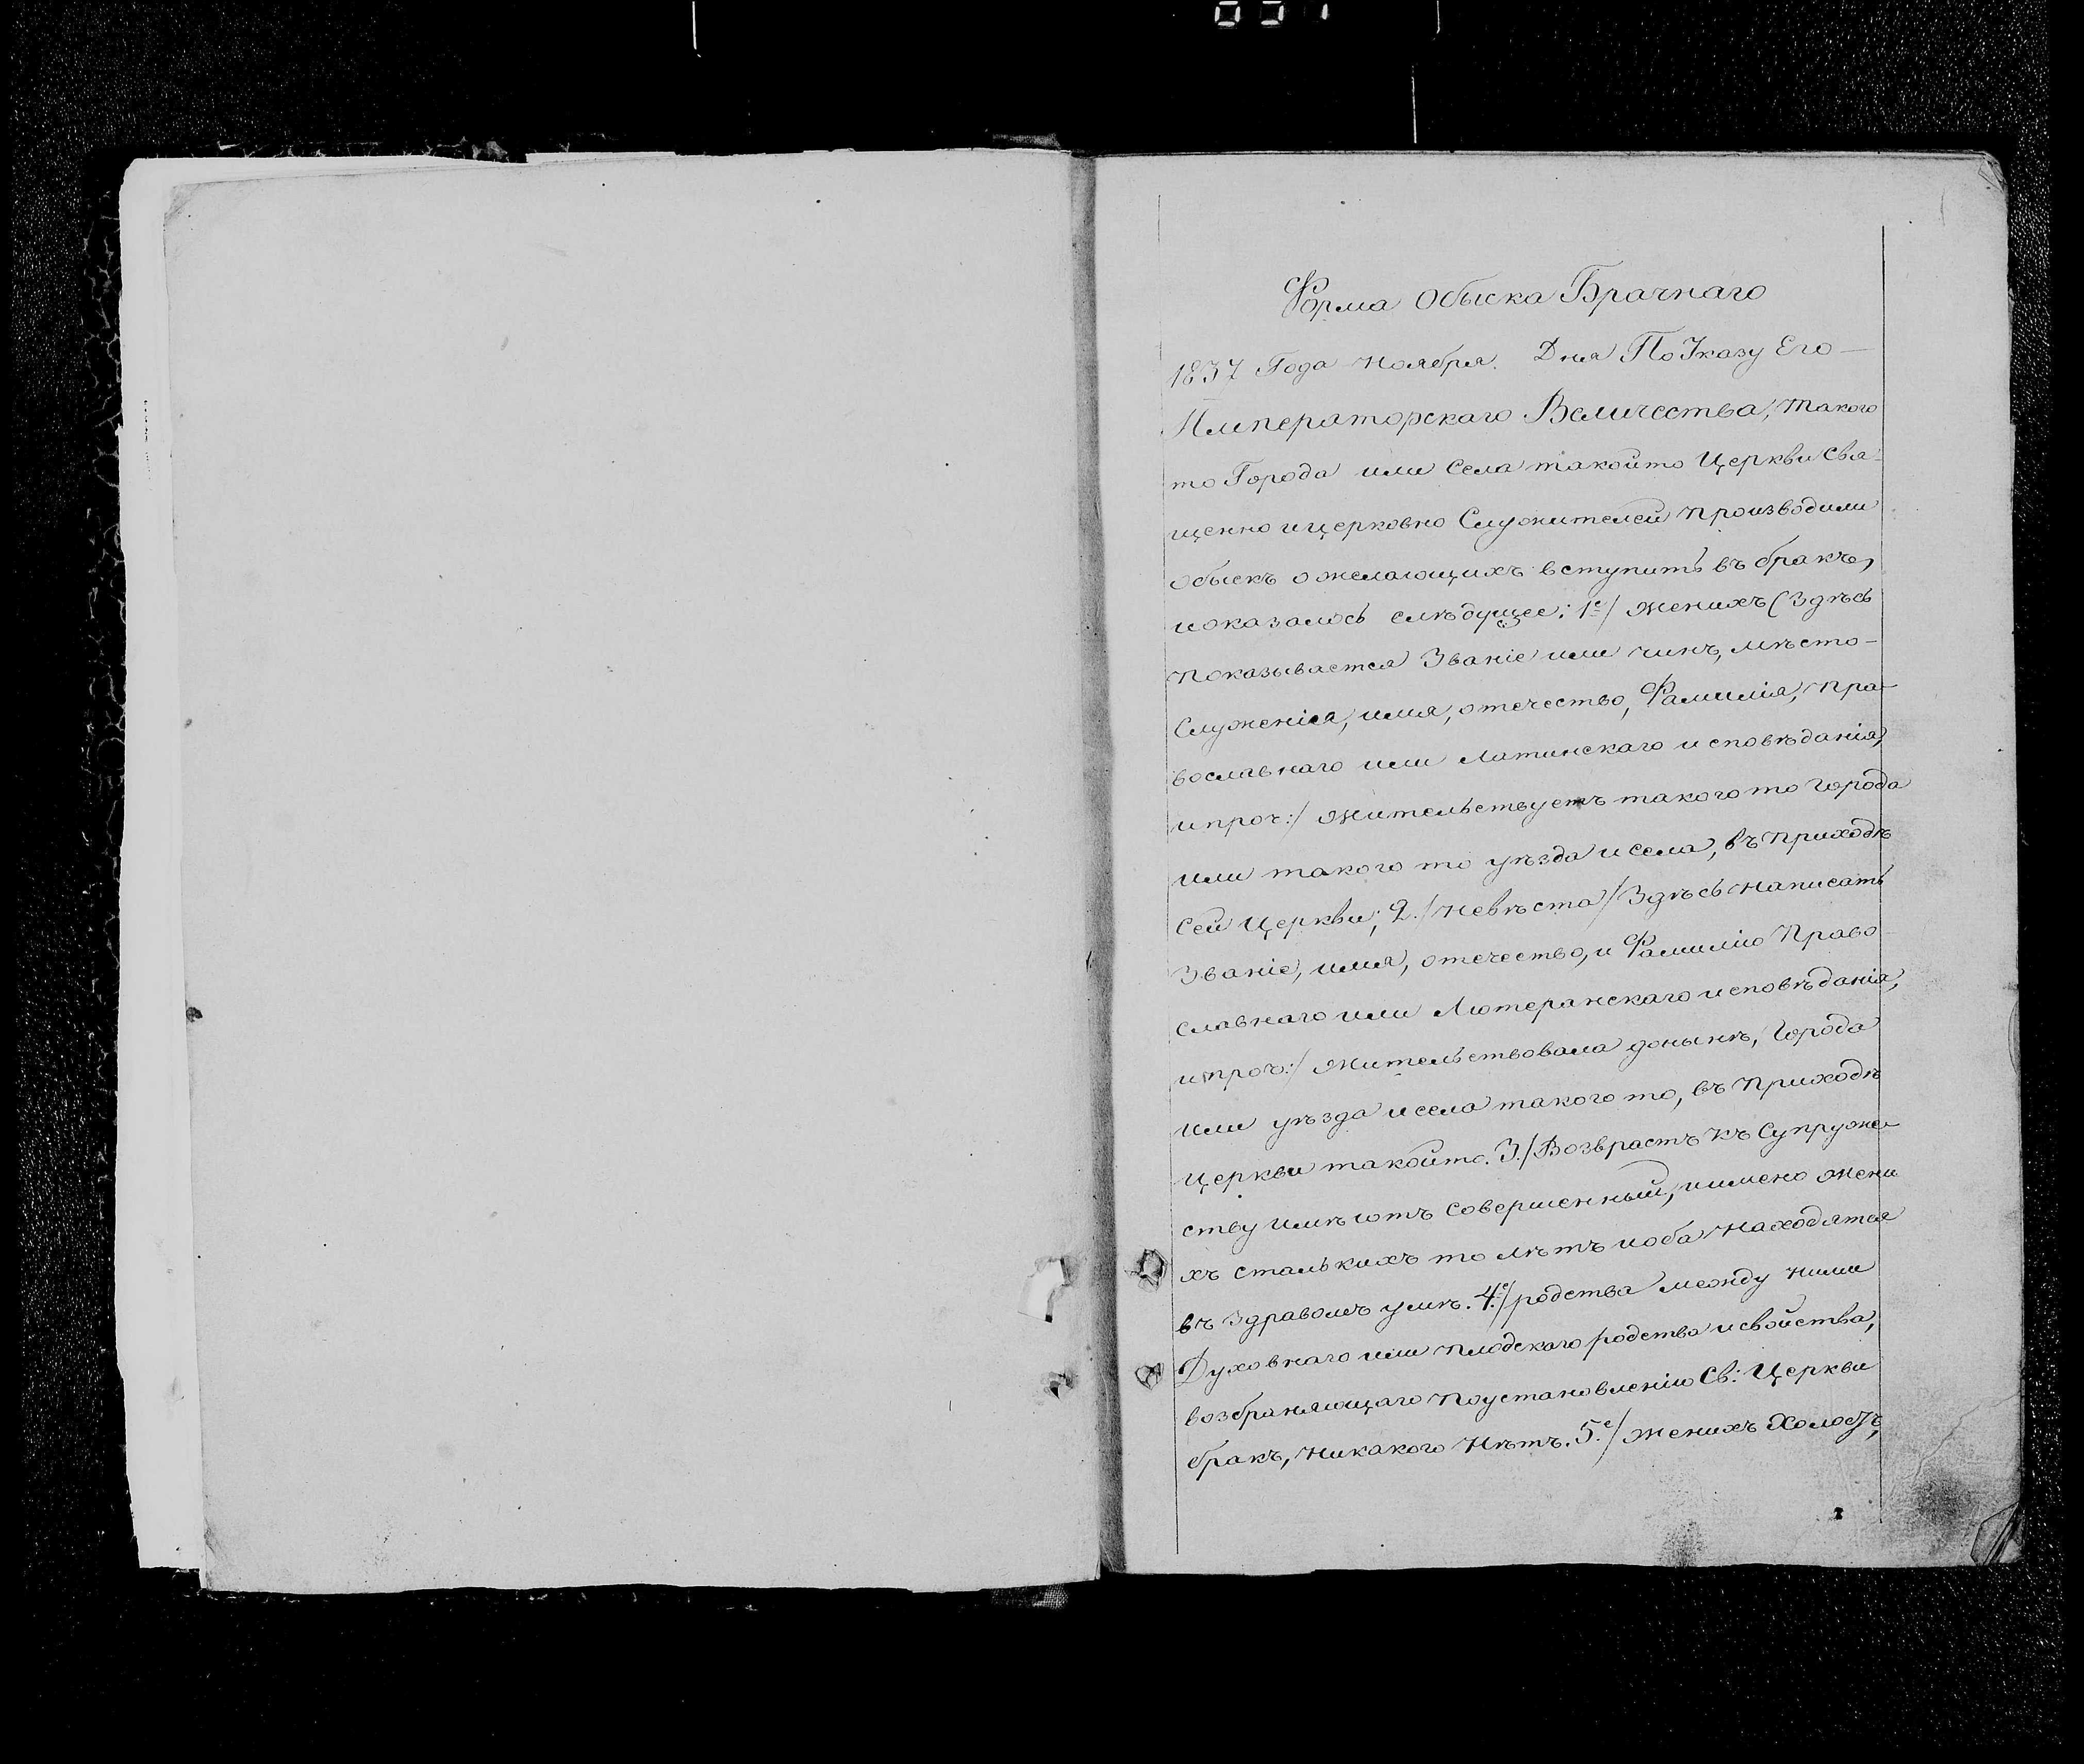 Форма Обыска Брачнаго
1837 Года Ноября. Дня По Указу Его —
Императорскаго Величества, такого
то Города или Села такойто Церкви Свя-
щенно и церковно Служителей производили
обыскъ о желающихъ вступить въ бракъ,
и оказалось слѣдущее: 1е/ женихъ (Здѣсь
показывается Званіе или чинъ, мѣсто-
Служенія, имя, отечество, Фамилія, пра-
вославнаго или Латинскаго исповѣданія,
и проч:/ жительствуетъ такого то Города
или такого то уѣзда и села, въ приходѣ
сей Церкви; 2./ Невѣста / Здѣсь написать
Званіе, имя, отечество, и Фамилію Право-
славнаго или Лютеранскаго исповѣданія,
и проч:/ жительствовала донынѣ, Города
или уѣзда и села такого то, въ приходѣ
Церкви такойто. 3./ Возврастъ къ Супруже-
ству имѣютъ совершенный, иимено жени
хъ сталькихъ то лѣтъ иоба находятся
въ здравомъ умѣ. 4.е/ родства между ними
Духовнаго или плодскаго родства и свойства,
возбраняющаго по установленію Св: Церкви
бракъ, никакого нѣтъ. 5.е/ женихъ Холостъ,